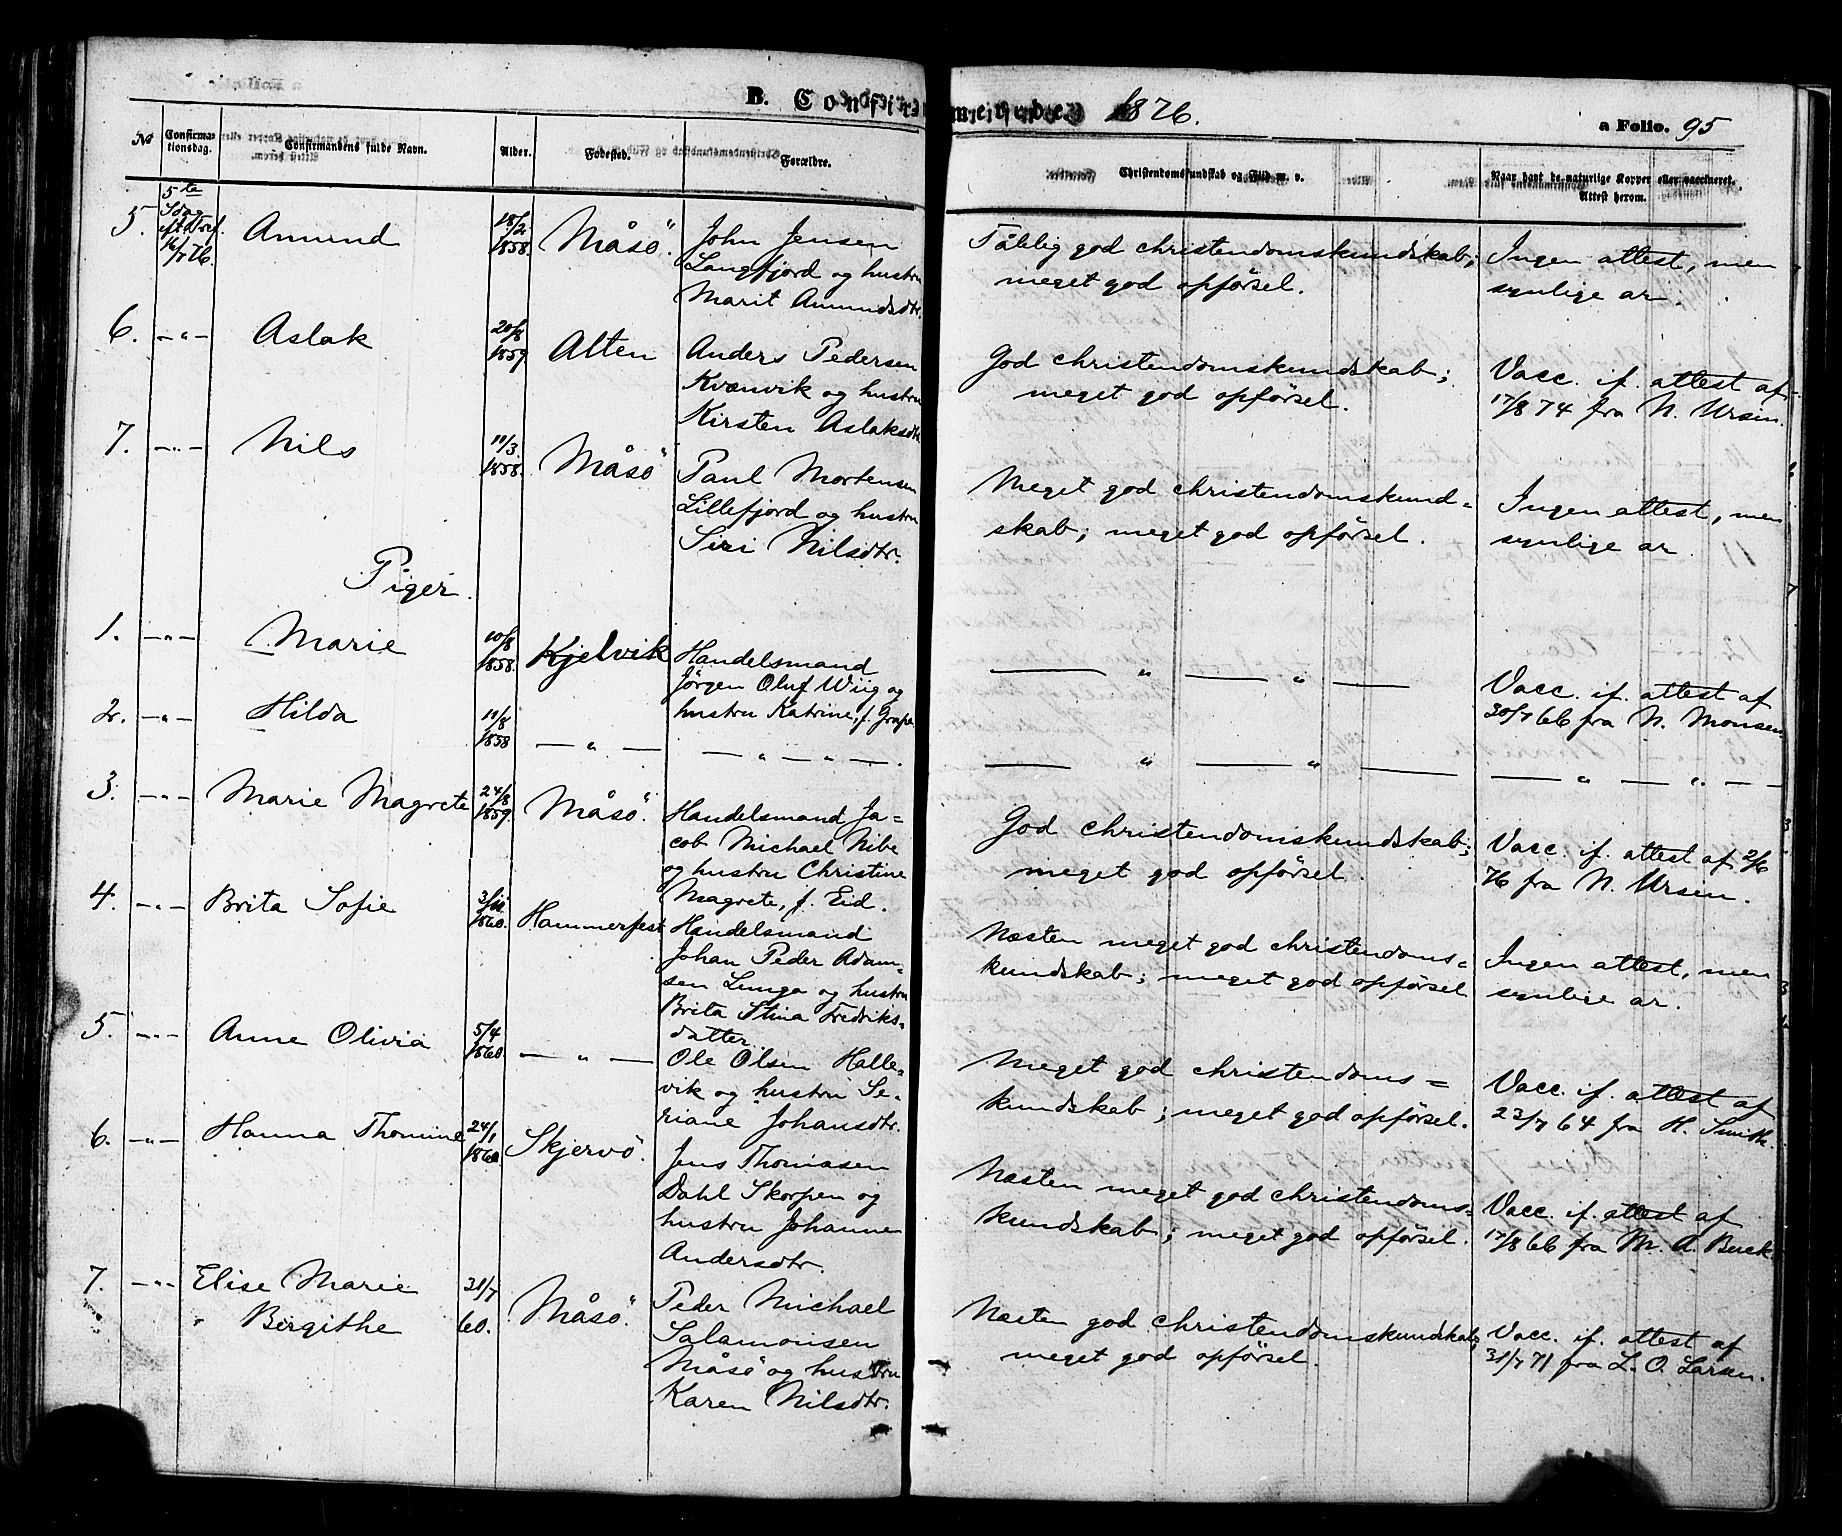 B. Confirmerede 1876.
a Folio. 95
No
Confirmationsdag.
Confirmandens fulde Navn.
Alder.
Fødested.
Forældre.
Christendomskundskab og Flid m. v.
Naar havt de naturlige Kopper eller vaccineret.
Attest herom.
5. 5te Sdag eft. Tref. 16/7 76. Amund 18/2 1858. Måsö. John Jensen
Langfjord og hustru
Marit Amundsdtr.
Tålelig god christendomskundskab;
meget god opførsel.
Ingen attest, men
synlige ar.
6. —"— Aslak 20/8 1859 Alten Anders Pedersen
Kvænvik og hustru
Kirsten Aslaksdtr
God christendomskundskab;
meget god opförsel.
Vacc. if. attest af
17/8 74 fra N. Ursin.
7. —"— Nils 11/3 1858. Måsö Paul Mortensen
Lillefjord og hustru
Siri Nilsdtr.
Meget god christendomskund=
skab; meget god opförsel.
Ingen attest, men
synlige ar.
Piger.
1. —"— Marie 10/8 1858. Kjelvik Handelsmand
Jörgen Oluf Wiig og
hustru Katrine, f. Grape
— " — " —
Vacc. if. attest af
30/7 66 fra N. Monsen.
2. —"— Hilda 10/8 1858 — " — — " — " —.
— " — " —
— " — " —
3. —"— Marie Magrete 24/8 1859. Måsö. Handelsmand Ja=
cob Michael Nibe
og hustru Christine
Magrete, f. Eid.
God christendomskundskab;
meget god opförsel.
Vacc. if. attest af 2/6
76 fra N. Ursin.
4. —"— Brita Sofie 3/11 1860. Hammerfest Handelsmand
Johan Peder Adam=
sen Lunga og hustru
Brita Stina Fredriks=
datter
Næsten meget god christendoms=
kundskab; meget god opförsel
Ingen attest, men
synlige ar.
5. —"— Anne Olivia 5/4 1860. — " — Ole Olsen Halle=
vik og hustru Se=
riane Johansdtr.
Meget god christendoms=
kundskab; meget god opförsel.
Vacc. if. attest af
23/7 64 fra H. Smith.
6. —"— Hanna Thomine 24/1 1860. Skjervö. Jens Thomasen
Dahl Skorpen og
hustru Johanne
Andersdtr.
Næsten meget god christendoms=
kundskab; meget god opförsel.
Vacc. if. attest af
17/8 66 fra M. A. Buck
7. —"— Elise Marie
Birgithe 31/7 60. Måsö. Peder Michael
Salamonsen
Måsö og hustru
Karen Nilsdtr.
Næsten god christendomskundskab;
meget god opförsel.
Vacc. if. attest af
31/7 71 fra L. O. Larsen.